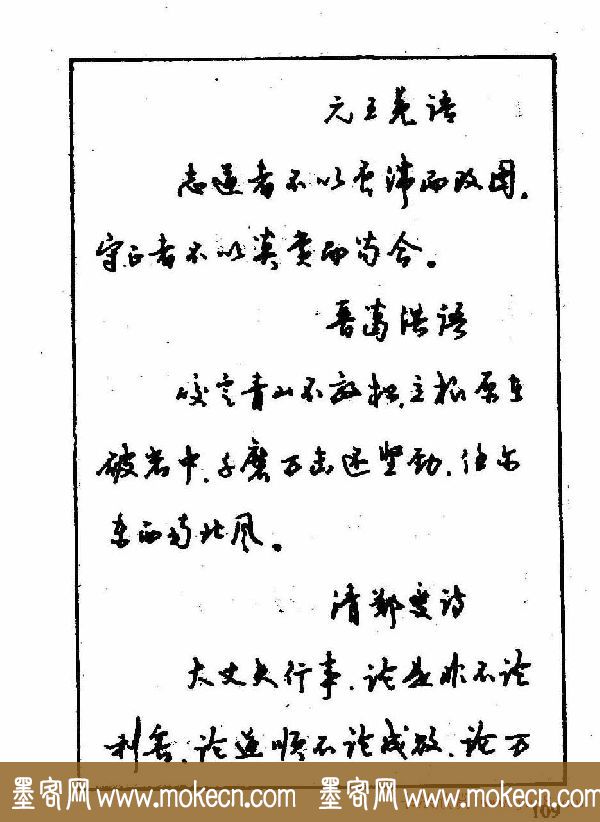 元王冕语
志道者不以否滞而改图，
守正者不以莫赏而苟合。
晋葛洪语
咬定青山不放松，立根原在
破岩中，千磨万击还坚劲，任尔
东西南北风。
清郑燮诗
大丈夫行事，论是非不论
利害，论逆顺不论成败，论万
墨客网 www.mokecn.com 墨客网 www.mokecn.com
109